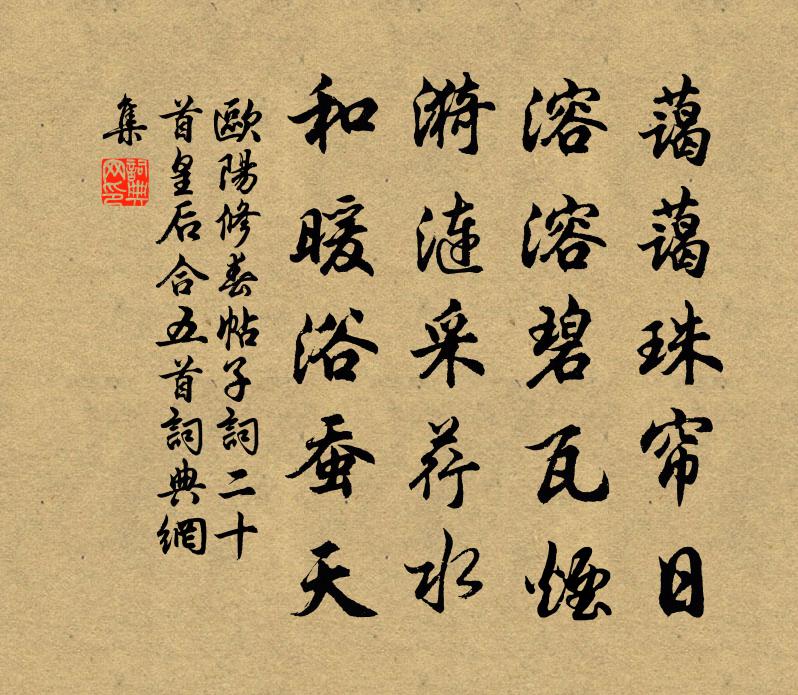 藹藹珠帘日
溶溶碧瓦煙
漪漣采荇水
和暖浴蚕天
歐陽修春帖子詞二十
首皇后合五首詞典網
集
詞典
网印